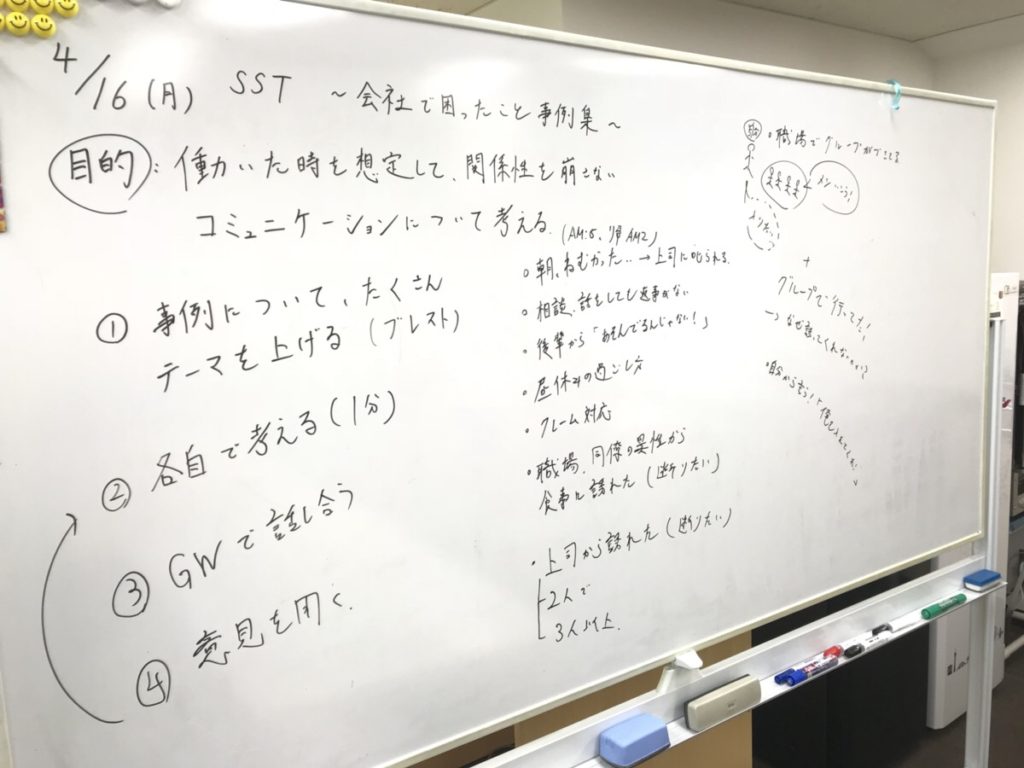 4/16(月) SST ~会社で困ったこと事例集~
目的:働いた時を想定して、関係性を崩さない
コミュニケーションについて考える.
① 事例について、たくさん
テーマを上げる(ブレスト)
② 各自で考える(1分)
③ GWで話し合う
④ 意見を聞く.
・朝、ねむかった‥→上司に叱られる.
・相談、話をしても返事がない
・後輩から「あそんでるんじゃない!」
・昼休みの過ごし方
・クレーム対応
・職場、同僚の異性から
食事に誘れた(断りたい)
・上司から誘れた(断りたい)
2人で
3人以上.
・職場でグループができてる
+
グループで行ってた!
→なぜ誘ってくれないのか?